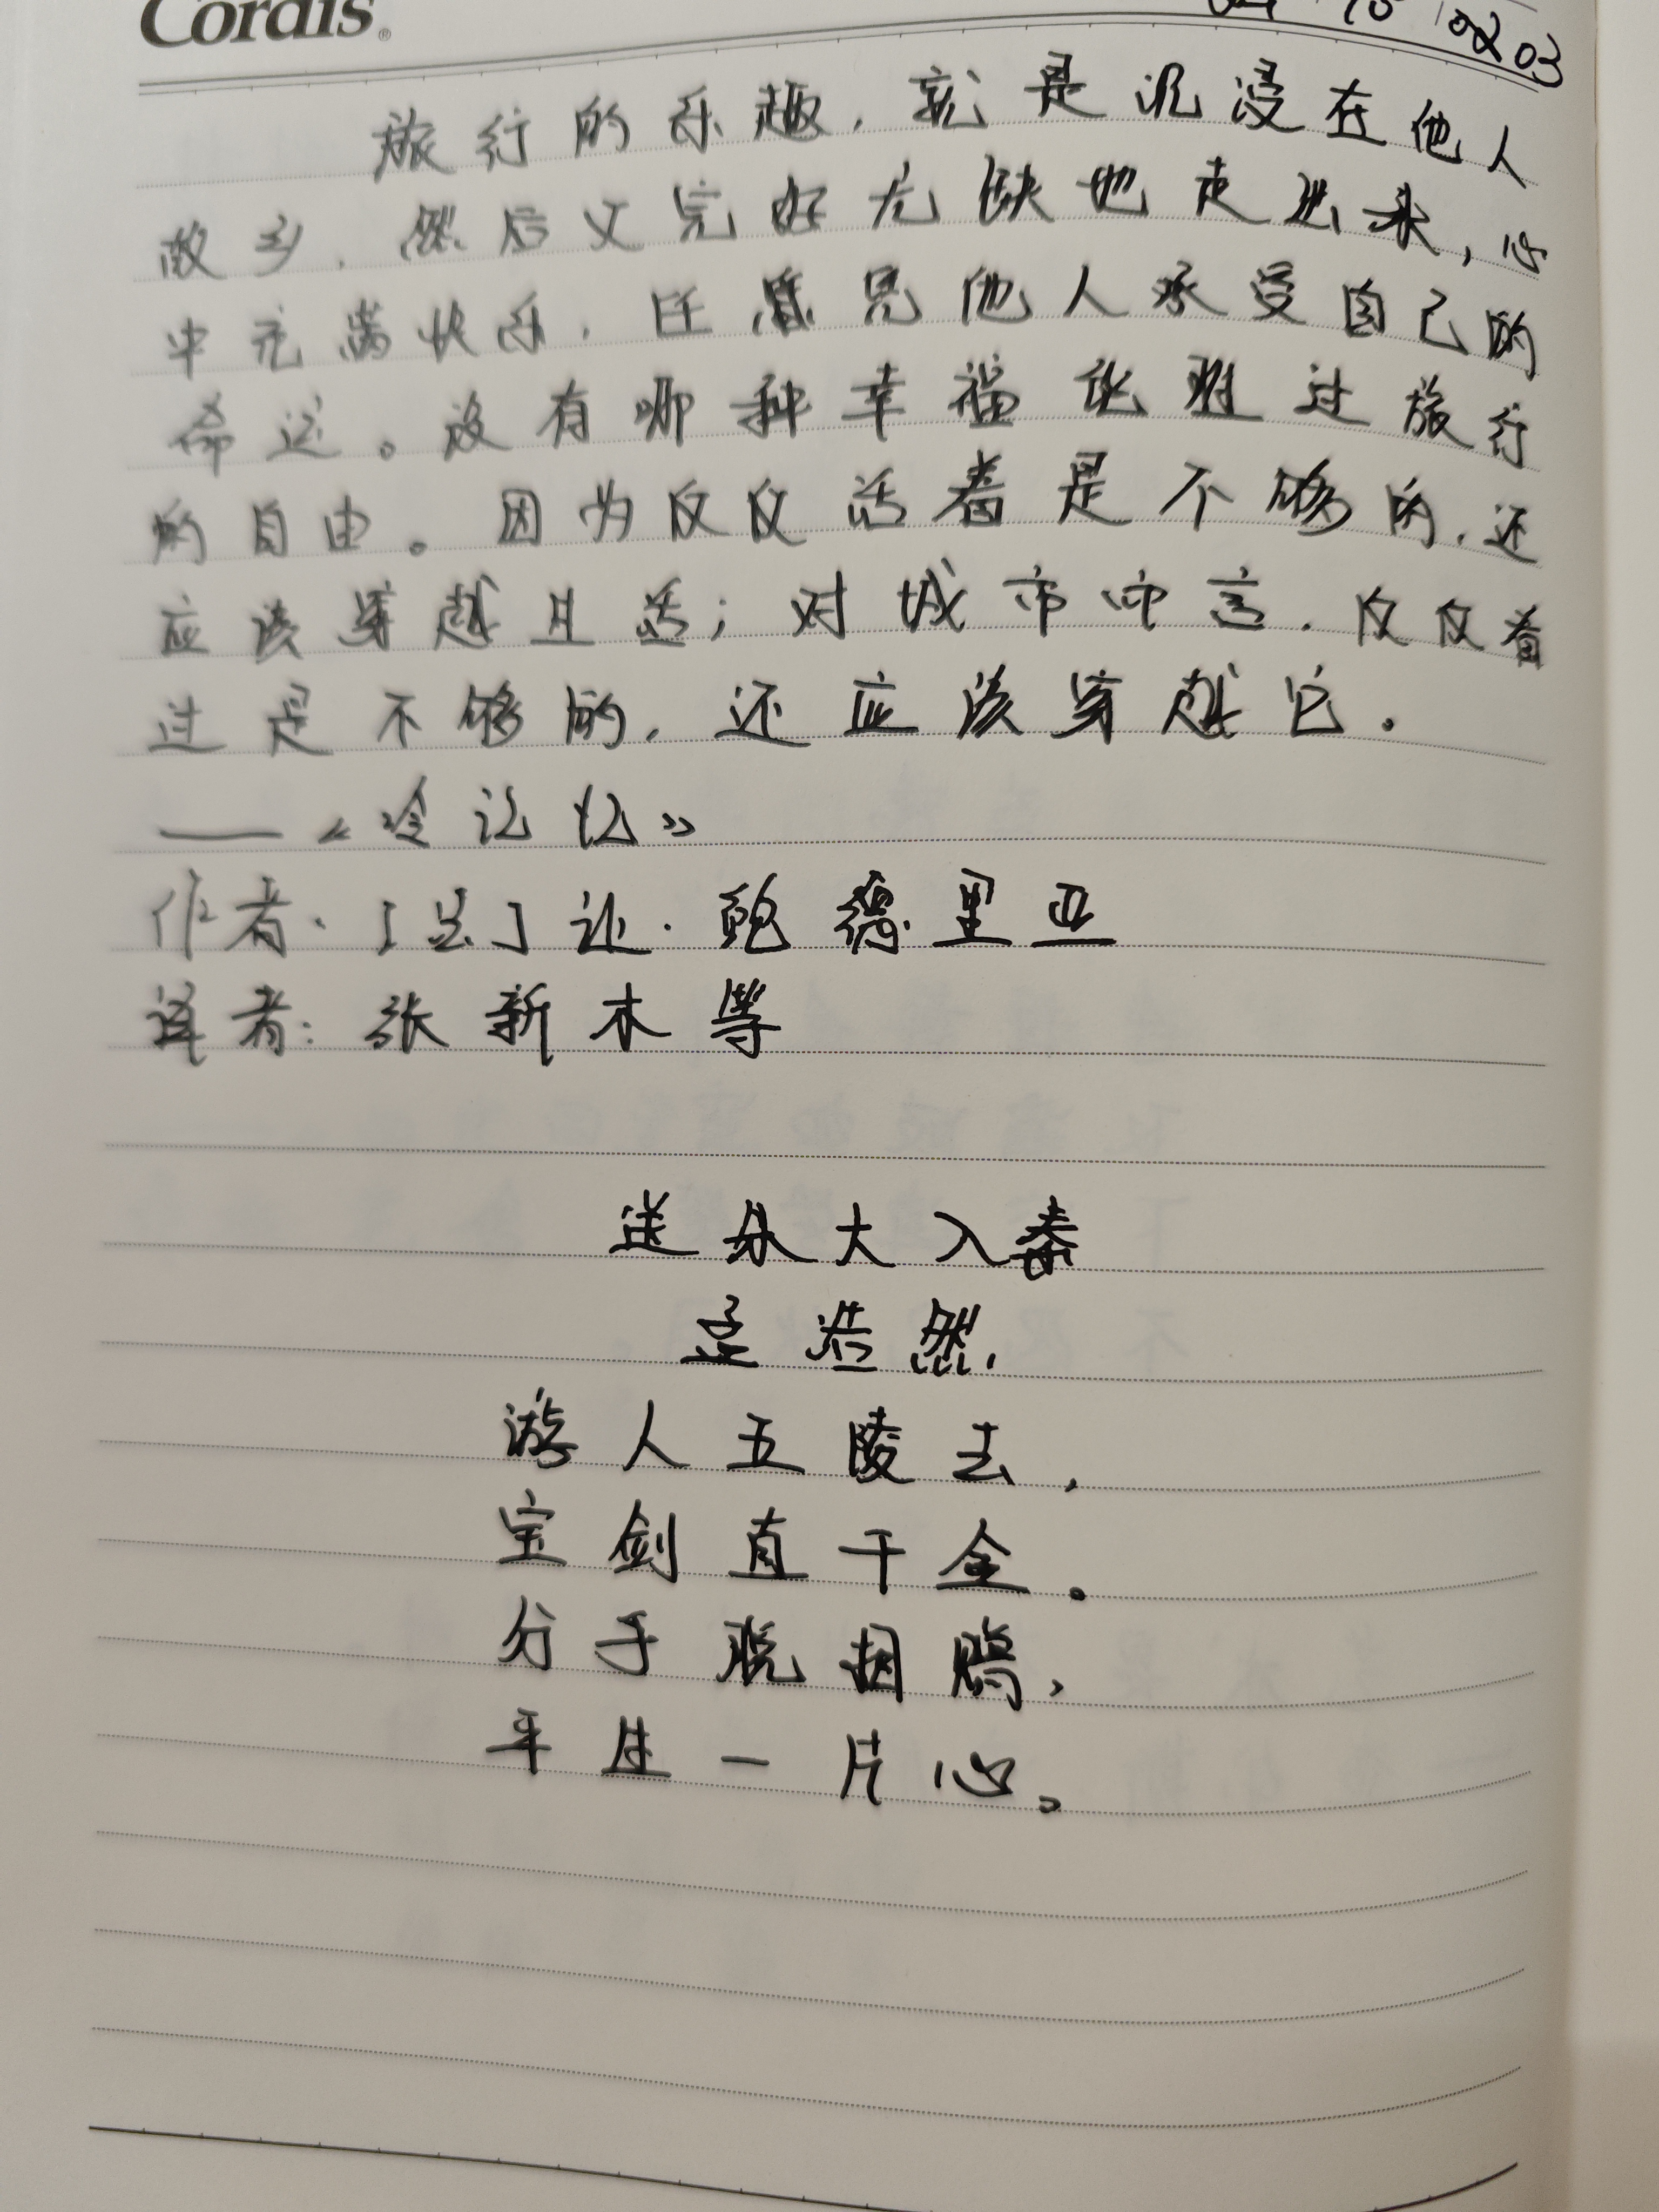 Cordis®
旅行的乐趣，就是沉浸在他人
故乡，然后又完好无缺地走出来，心
中充满快乐，任凭他人承受自己的
命运。没有哪种幸福能胜过旅行
的自由。因为仅仅活着是不够的，还
应该穿越生活；对城市而言，仅仅看
过是不够的，还应该穿越它。
——《冷记忆》
作者：[法]让·鲍德里亚
译者：张新木等
送朱大入秦
孟浩然
游人五陵去，
宝剑直千金。
分手脱相赠，
平生一片心。